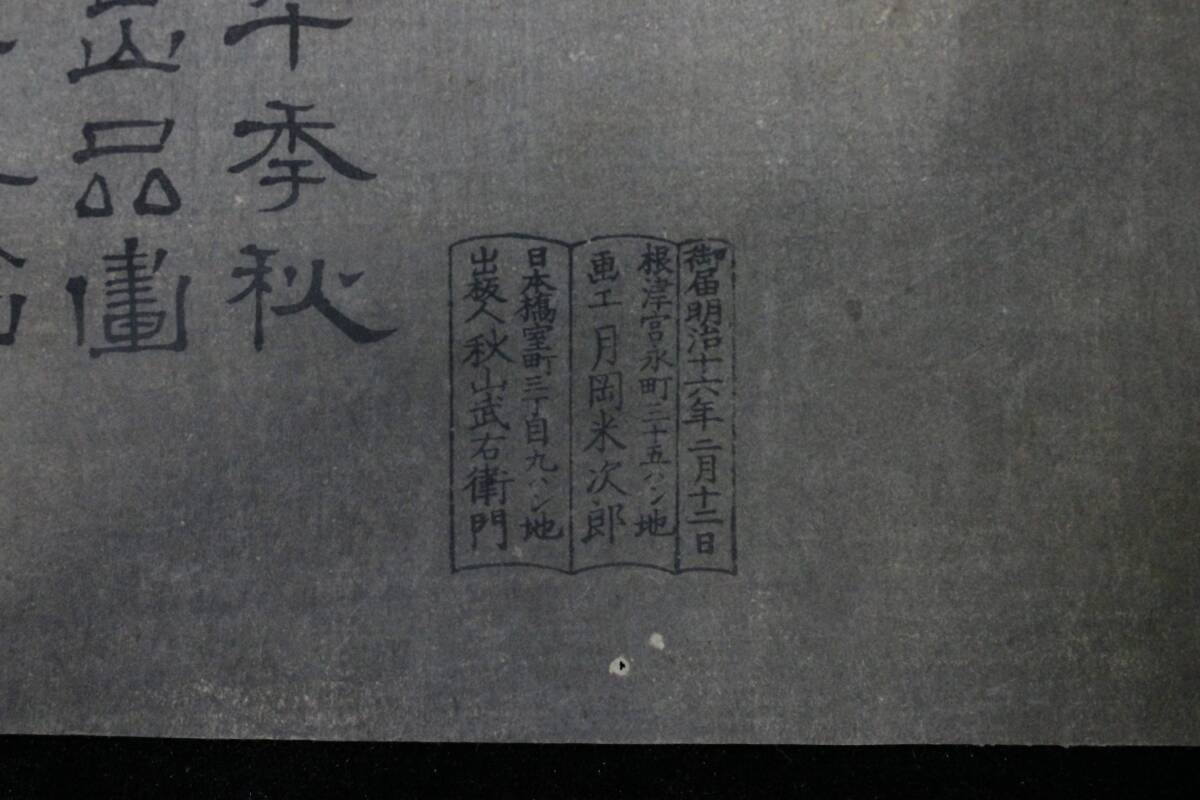 年季秋
出品畫
御届明治十六年二月十二日
根津宮永町三十五バン地
画工 月岡米次郎
日本橋室町三丁目九バン地
出板人 秋山武右衛門